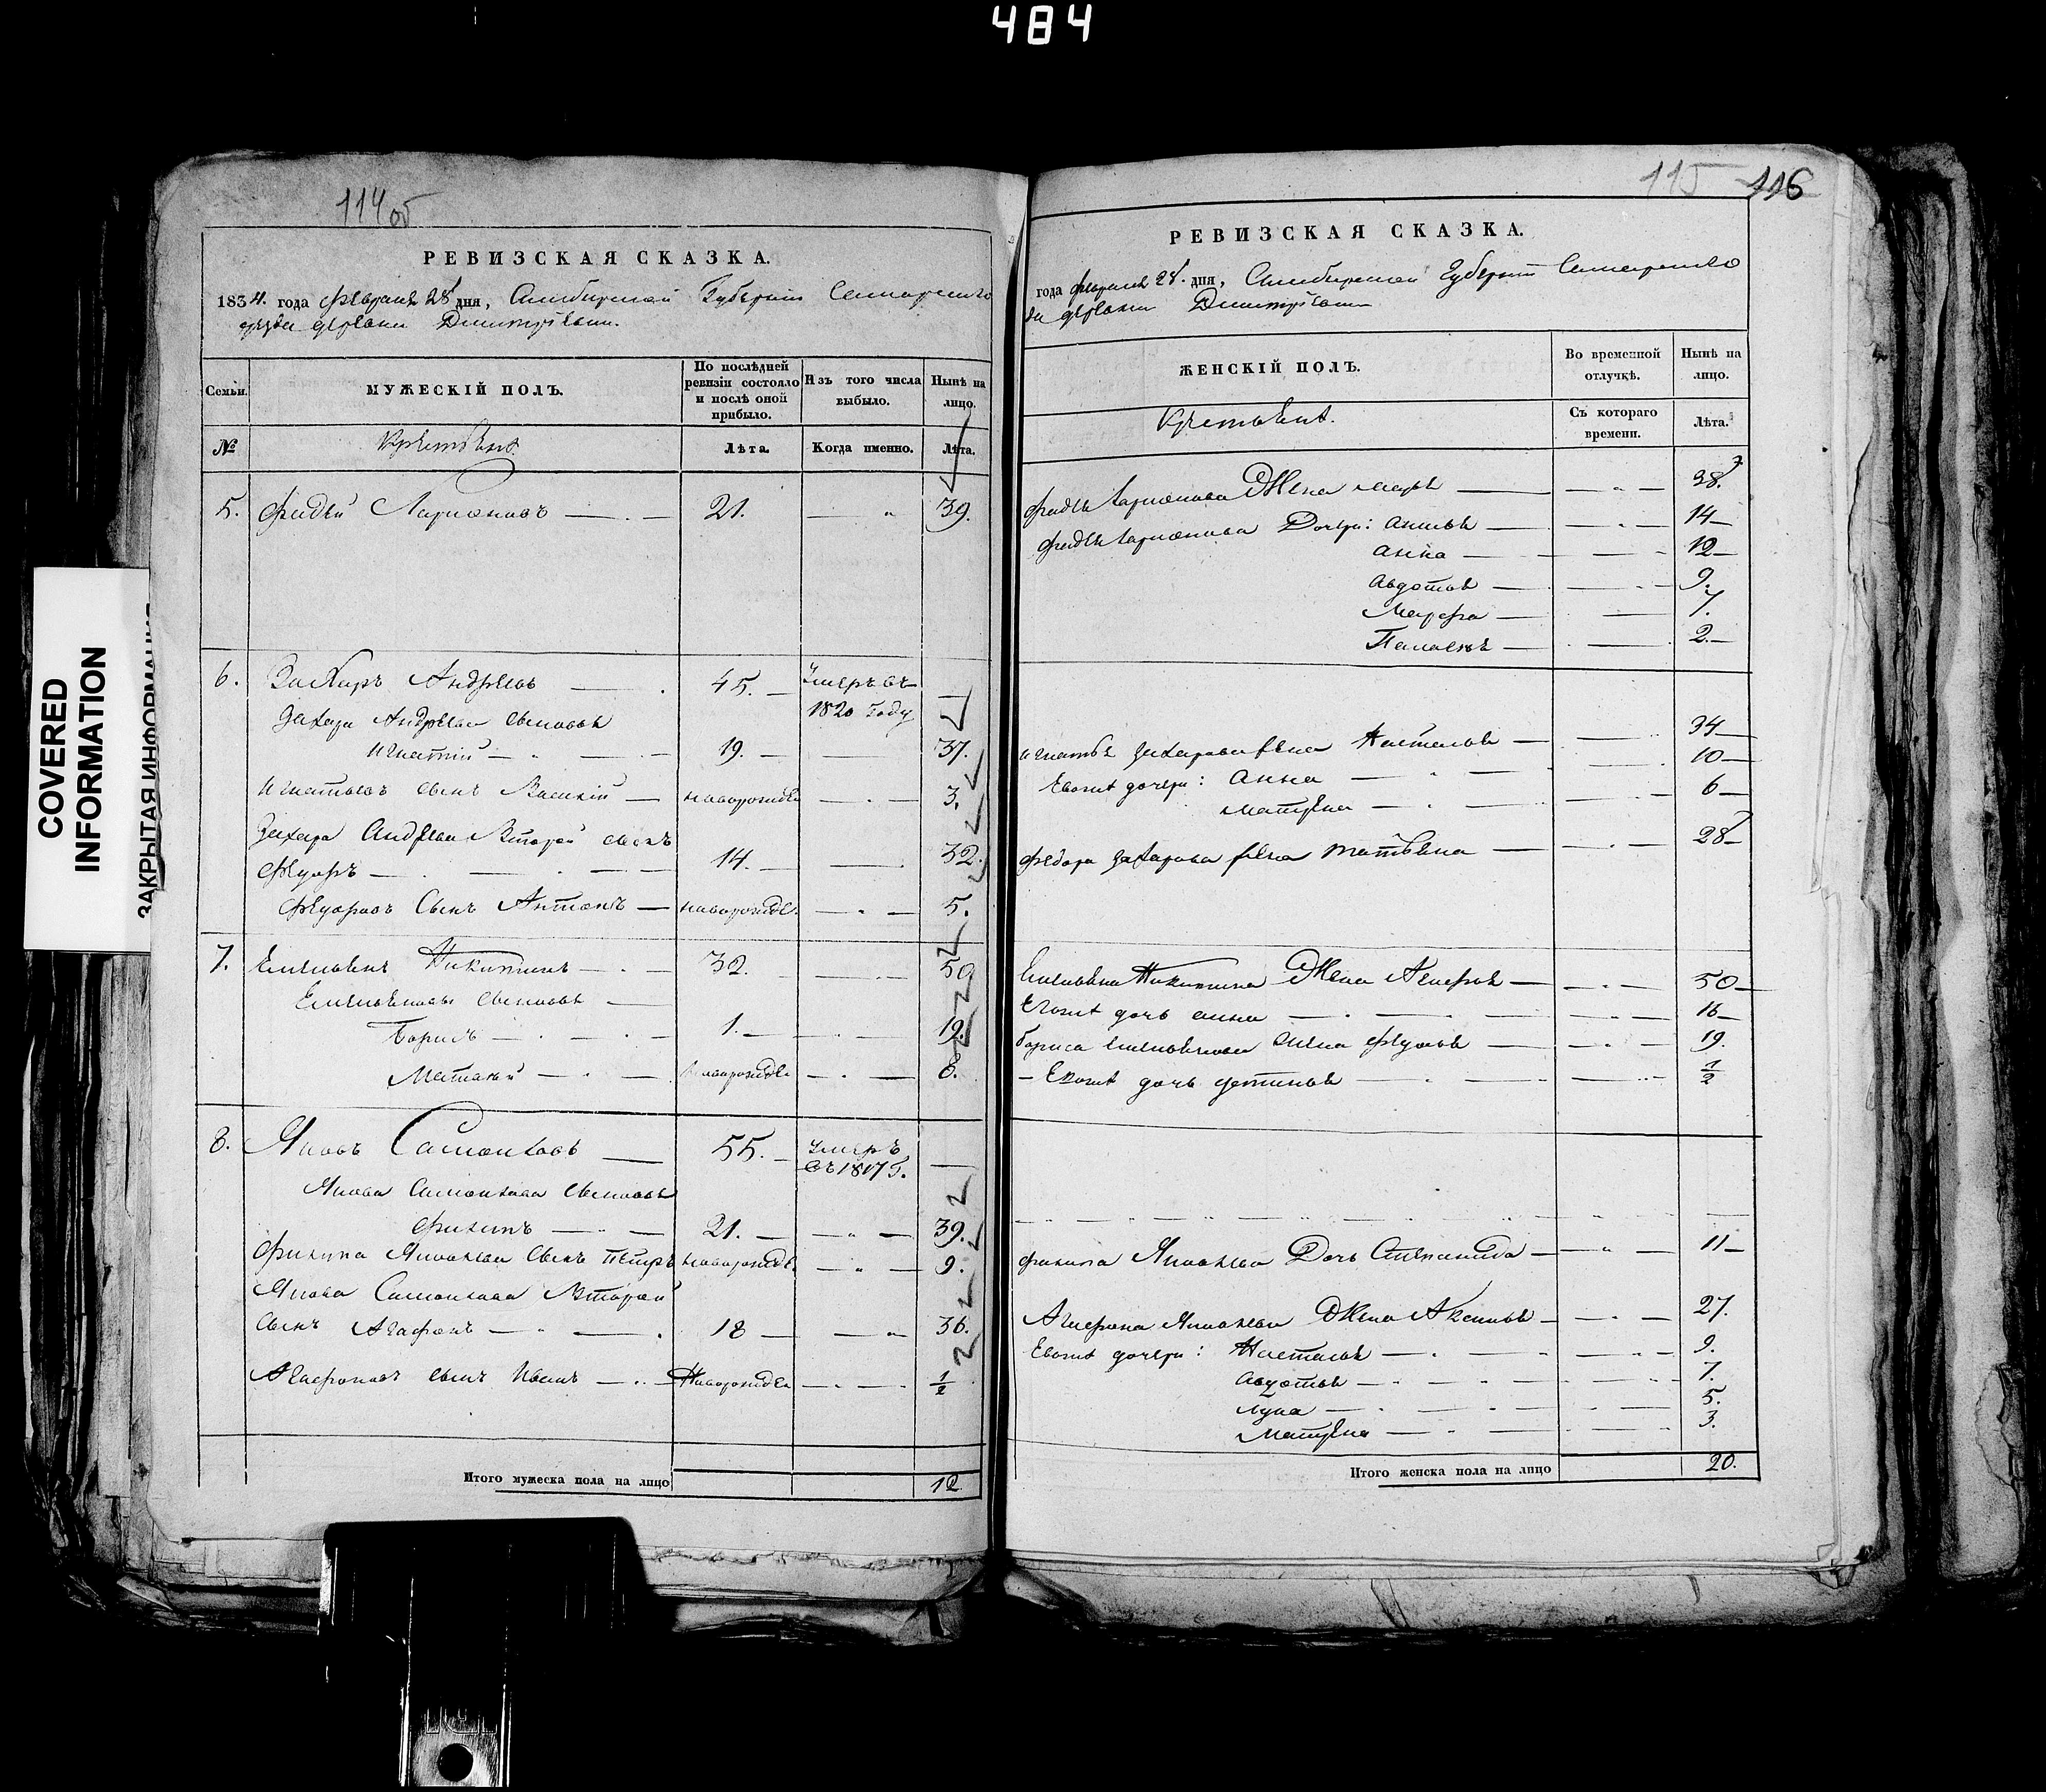 484
COVERED
INFORMATION
ЗАКРЫТАЯ ИНФОРМАЦИЯ
114 об
РЕВИЗСКАЯ СКАЗКА.
1834. года февраля 28 дня, Симбирской Губернии Самарского
уезда деревни Димитревки.
Семьи.
МУЖЕСКІЙ ПОЛЪ.
По послѣдней ревизіи состояло и послѣ оной прибыло.
Изъ того числа выбыло.
Нынѣ на лицо.
№
Крестьяне
Лѣта.
Когда именно.
Лѣта.
5. Фадѣй Ларионовъ 21. 39.
6. Захаръ Андрѣевъ 45. Умеръ въ 1820 году
Захара Андрѣева сыновья
Игнатий 19. 37.
Игнатьевъ сынъ Василий новорожде 3.
Захара Андрѣева Второй сынъ
Федоръ 14. 32.
Федоровъ Сынъ Антонъ новорожде. 5.
7. Емельянъ Никитинъ 32. 50
Емельяновы сыновья
Борисъ 1. 19.
Матвей новорожде 8.
8. Яковъ Самойловъ 55. умеръ въ 1817 г.
Якова Самойлова сыновья
Филипъ 21. 39.
Филипа Яковлева сынъ Петръ новорожде. 9.
Якова Самойлова Второй
сынъ Агафонъ 18 36.
Агафоновъ сынъ Иванъ Новорожде 1/2
Итого мужеска пола на лицо 12
115 116
РЕВИЗСКАЯ СКАЗКА.
года февраля 28. дня, Симбирской Губернии Самарского
да деревни Димитревки
ЖЕНСКІЙ ПОЛЪ.
Во временной отлучкѣ.
Нынѣ на лицо.
Крестьяне.
Съ котораго времени.
Лѣта.
Фадея Ларионова Жена Марья 38.
Фадея Ларионова Дочери: Анисья 14
Анна 12
Авдотья 9.
Марфа 7.
2.
Игнатья Захарова жена Настасья 34
Евоже дочери: Анна 10
Матрена 6
Федора Захарова жена Татьяна 28
Емельяна Никитина Жена Агафья 50
Егоже дочь Анна 16
Бориса Емельянова жена Федосья 19.
Евоже дочь Устинья 1/2
Филипа Яковлева Дочь Степанида 11
Агафона Яковлева Жена Аксинья 27.
Евоже дочери: Настасья 9.
Авдотья 7.
5.
Матрена 3.
Итого женска пола на лицо 20.